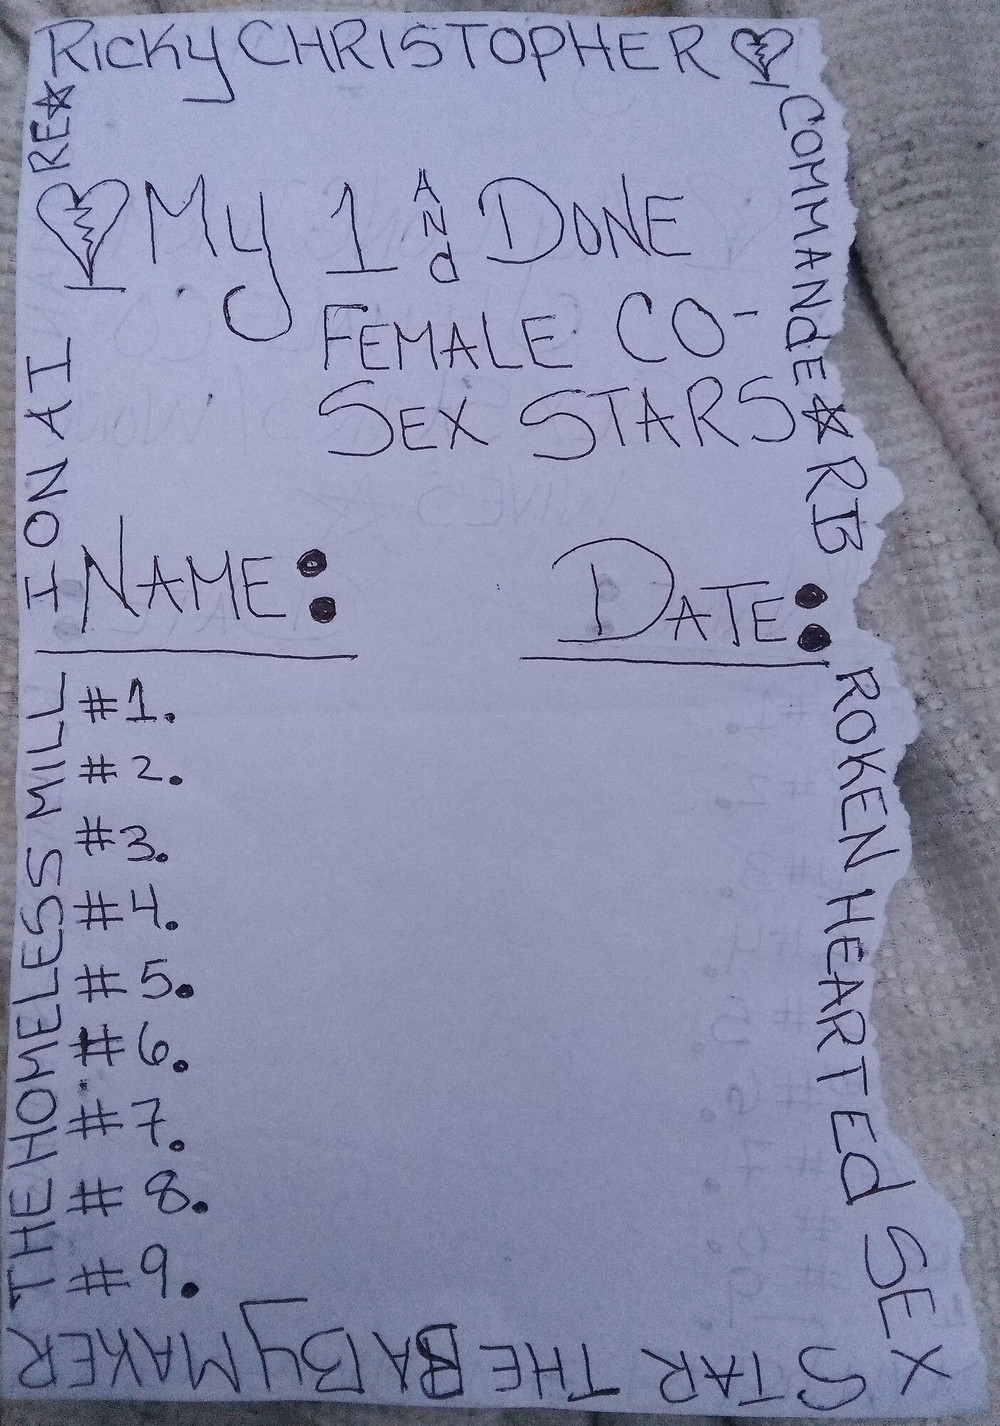 RICKY CHRISTOPHER
COMMANdER
RB
ROKEN HEARTEd SEX
STAR THE BABY MAKER
THE HOMELESS MILL
I ON AI
RE
My 1 ANd DONE
FEMALE CO-
SEX STARS
NAME: DATE:
#1.
#2.
#3.
#4.
#5.
#6.
#7.
#8.
#9.